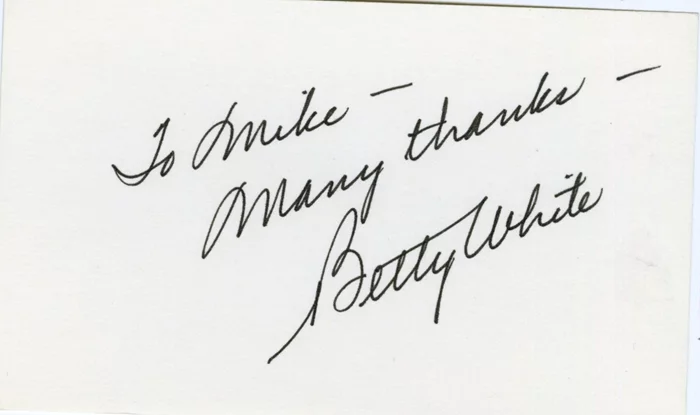 To Mike —
Many thanks —
Betty White